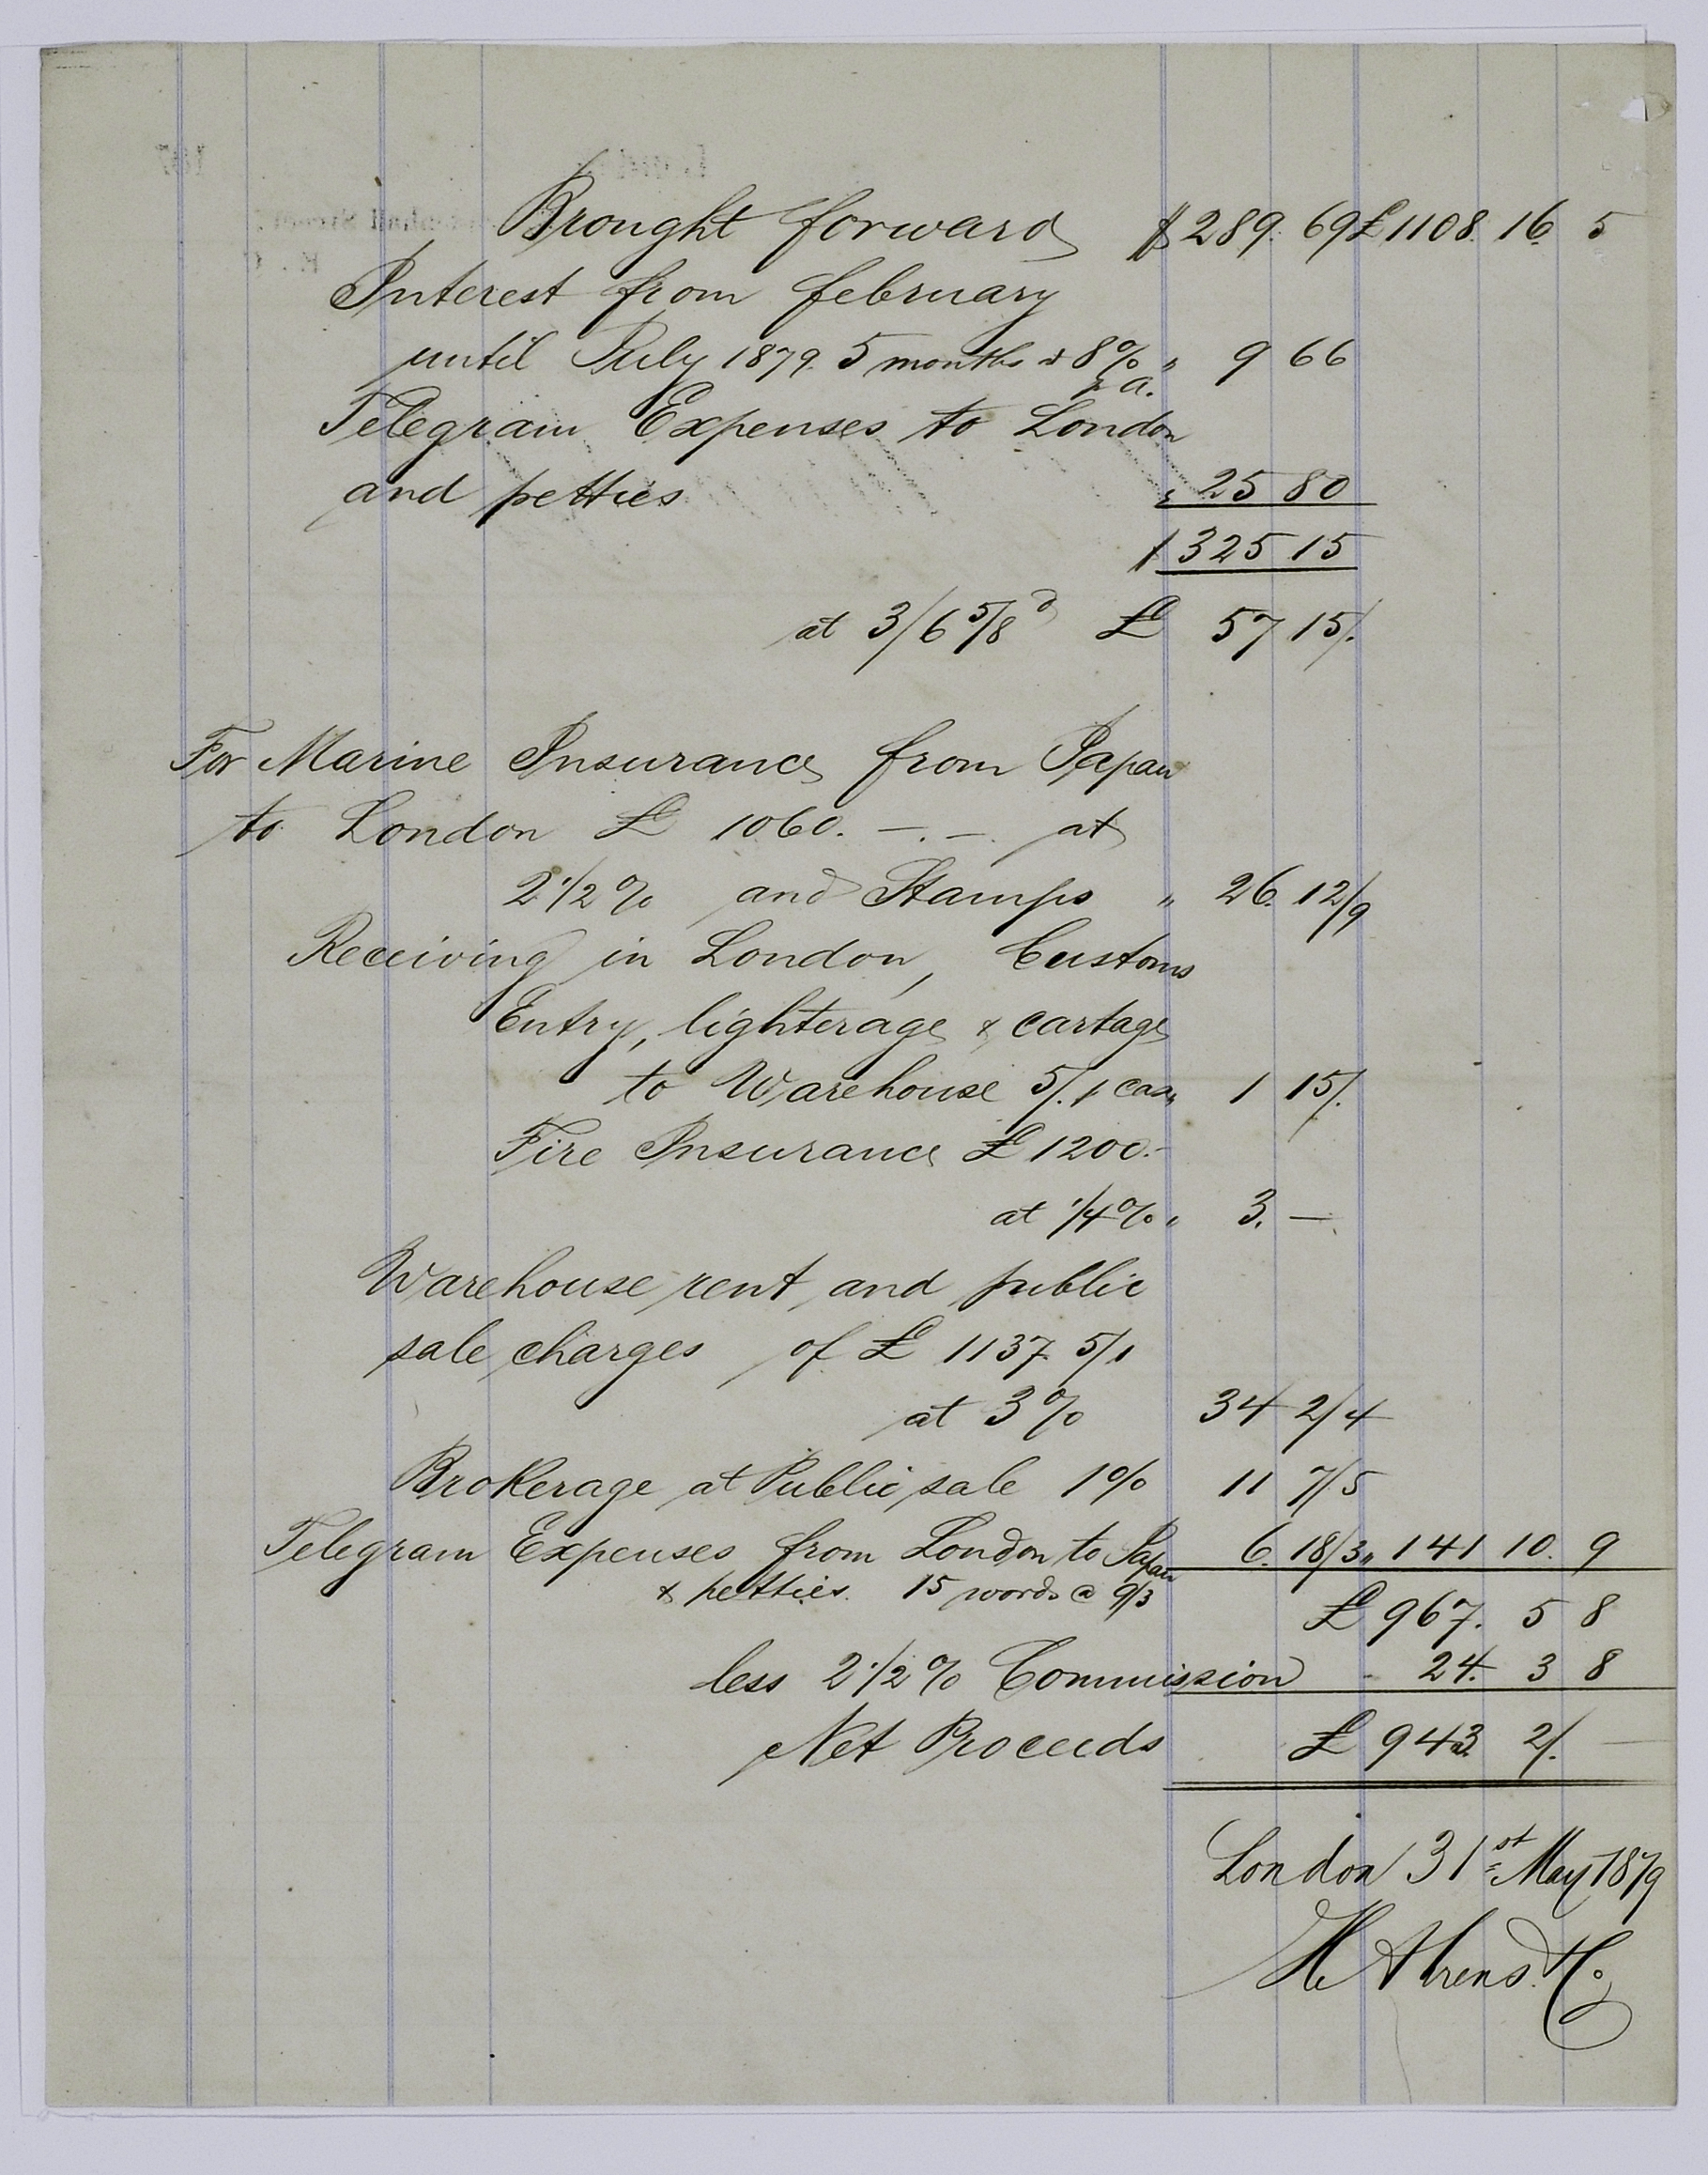 Brought forward $ 289. 69 £ 1108. 16. 5
Interest from february
until July 1879. 5 months @ 8% " 9 66
p a.
Telegram Expenses to London
and petties " 25 80
$ 325 15
at 3/6 5/8 d £ 57 15/.
For Marine Insurance from Japan
to London £ 1060. –. –. at
2 1/2 % and Stamps " 26. 12/9
Receiving in London, Customs
Entry, lighterage & cartage
to Warehouse 5/. p case " 1 15/.
Fire Insurance £ 1200.–
at 1/4 % " 3. –
Warehouse rent, and public
sale charges of £ 1137. 5/1
at 3% 34 2/4
Brokerage at Public sale 1% 11 7/5
Telegram Expenses from London to Japan 6. 18/3 " 141 10. 9
& petties. 15 words @ 9/3
£ 967. 5 8
less 2 1/2 % Commission - 24. 3 8
Net Proceeds £ 943 2/. –
London 31st May 1879
H Ahrens & Co